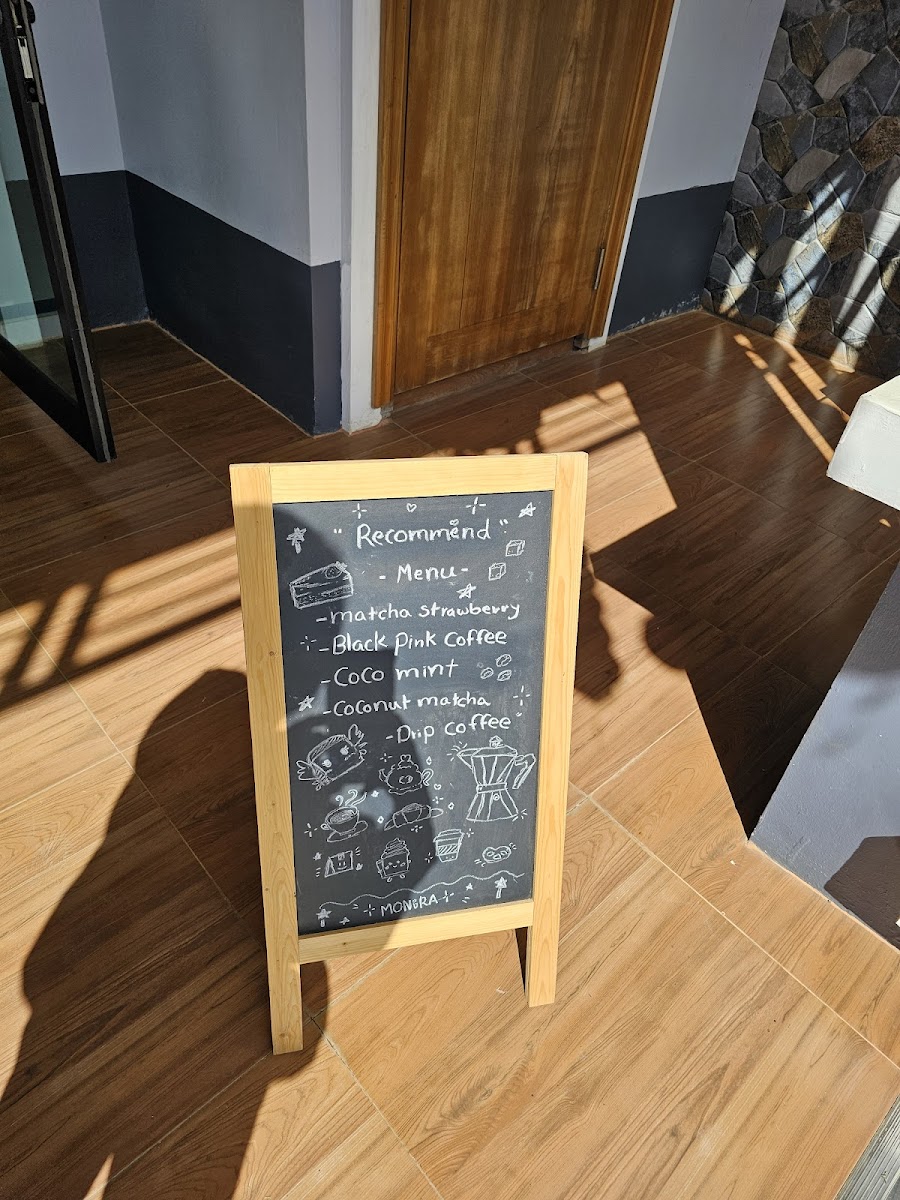 "Recommend"
- Menu-
-matcha strawberry
-Black Pink Coffee
-CoCo mint
-Coconut matcha
-Drip coffee
MONERA